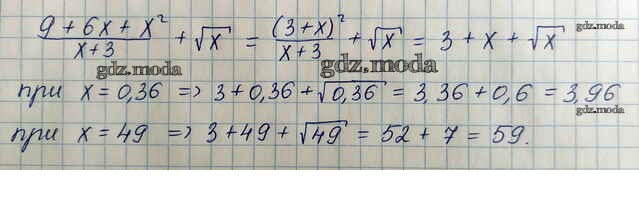 (9 + 6x + x²)/(x+3) + √x = (3+x)²/(x+3) + √x = 3 + x + √x
gdz.moda
gdz.moda
gdz.moda
при x = 0,36 => 3 + 0,36 + √0,36 = 3,36 + 0,6 = 3,96
gdz.moda
при x = 49 => 3 + 49 + √49 = 52 + 7 = 59.